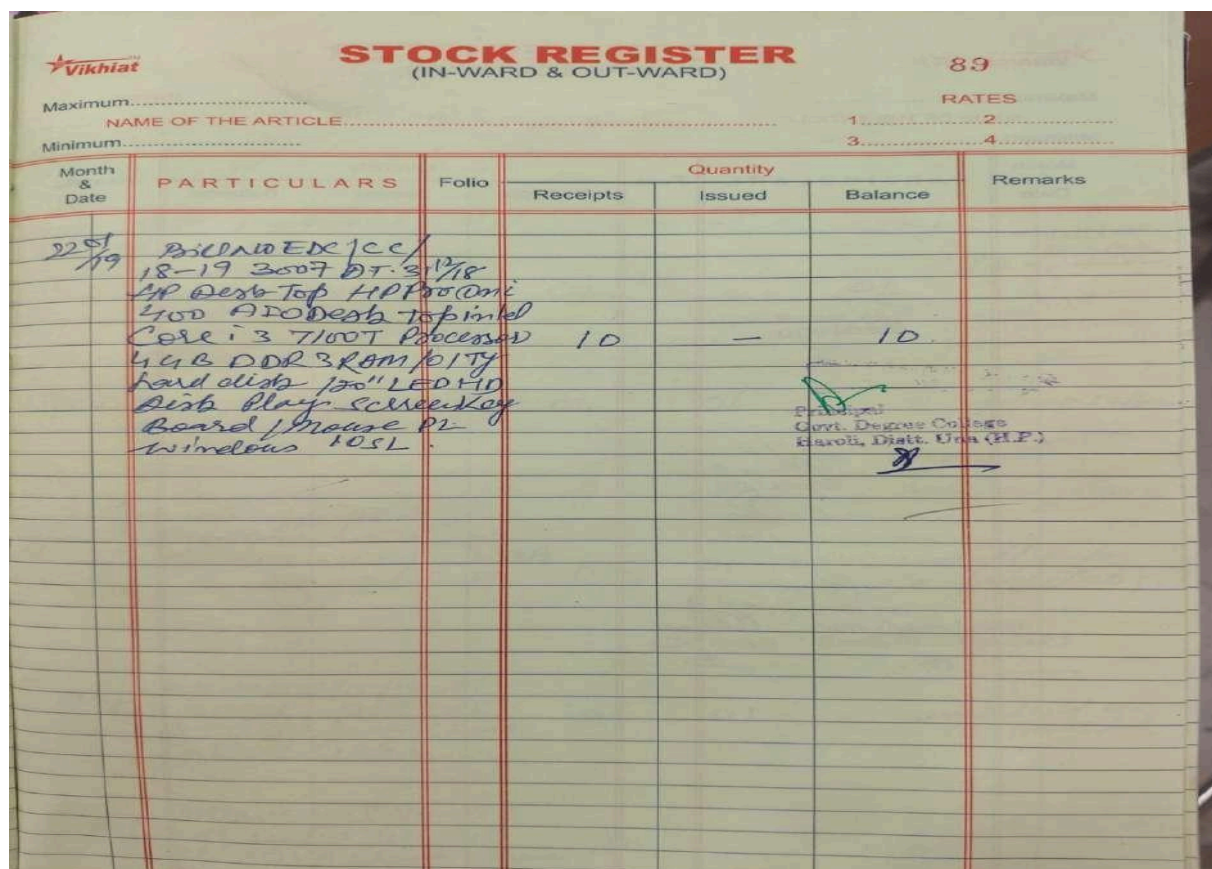 Vikhiat
STOCK REGISTER
(IN-WARD & OUT-WARD)
89
Maximum
RATES
NAME OF THE ARTICLE
1 2
Minimum
3 4
Month & Date PARTICULARS Folio Quantity Remarks
Receipts Issued Balance
22 01/19 Bill No EDC/CC/
18-19 3007 DT. 31 12/18
HP Desk Top HP Pro Oni
400 AIO Desk Top intel
Core i3 7100T Processor 10 — 10
4GB DDR 3 RAM /01TY
hard disk /20" LED HD
Disk Play Screen Key
Board / Mouse P2
Windows 10SL
Principal
Govt. Degree College
Haroli, Distt. Una (H.P.)